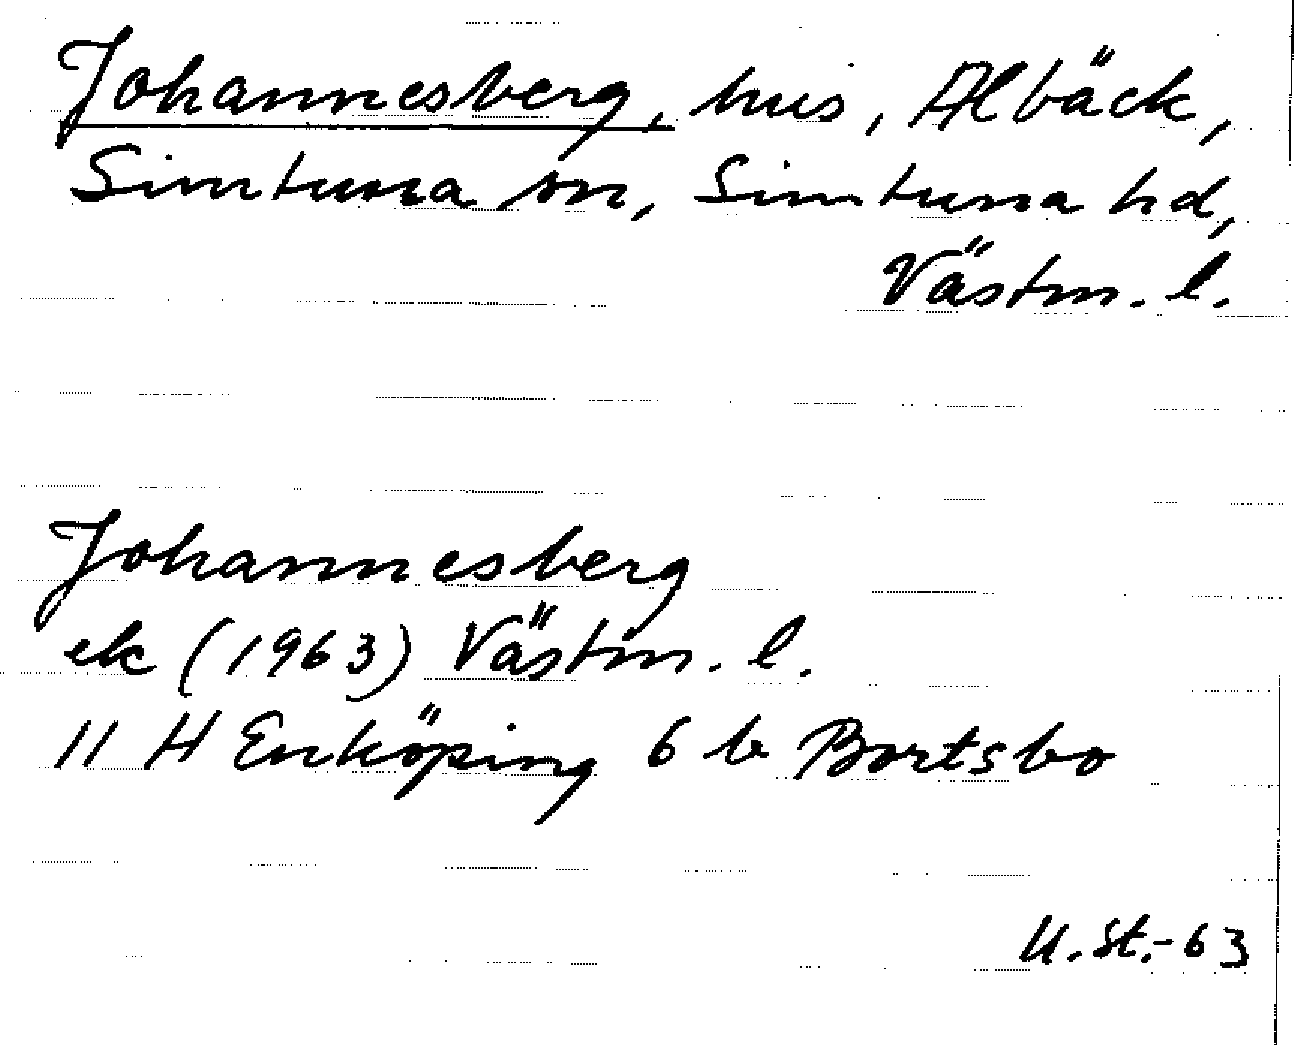 Johannesberg, hus, Albäck,
Simtuna sn, Simtuna hd,
Västm. l.
Johannesberg
ek (1963) Västm. l.
11 H Enköping 6 b Bortsbo
U. St.-63